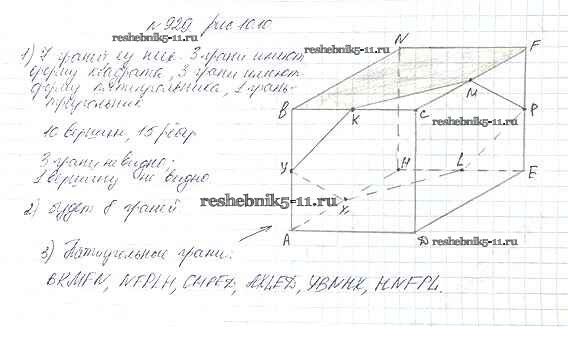 № 929 рис 10.10
reshebnik5-11.ru
1) 7 граней у него. 3 грани имеют
форму квадрата, 3 грани имеют
форму пятиугольника, 1 грань-
треугольник
10 вершин, 15 рёбер
3 грани не видно;
1 вершину не видно
2) будет 8 граней
3) Пятиугольные грани:
BKMFN, NFPLH, CMPED, AKLED, YBNHX, HNFPL.
N
F
B
K
C
M
reshebnik5-11.ru
P
У
H
L
E
X
reshebnik5-11.ru
A
D
reshebnik5-11.ru